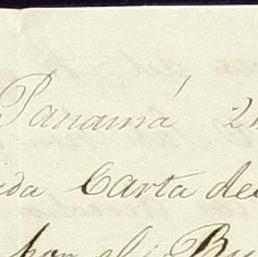 Panamá 2
da Carta de
por el B